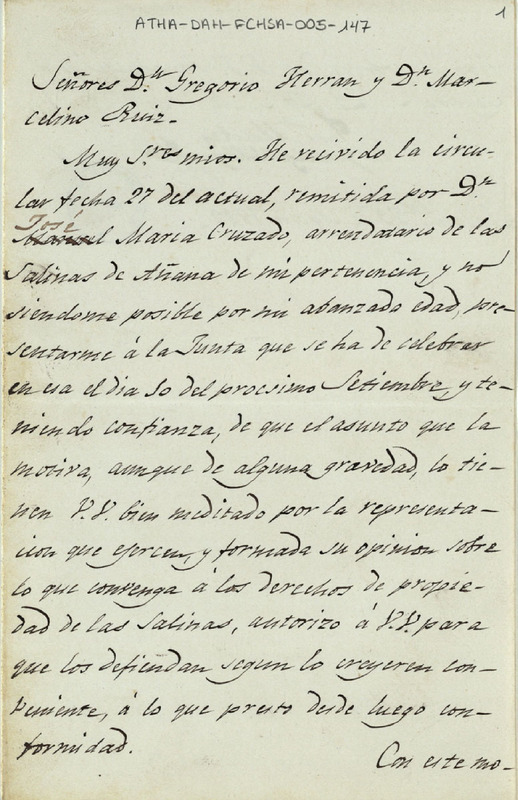 ATHA-DAH-FCHSA-005-147
1
Señores Dn. Gregorio Herran y Dn. Mar-
celino Ruiz.
Muy Sres mios. He recivido la circu-
lar fecha 27 del actual, remitida por Dn
José
Manuel Maria Cruzado, arrendatario de las
Salinas de Añana de mi pertenencia, y no
siendome posible por mi abanzada edad, pre-
sentarme á la Junta que se ha de celebrar
en esa el dia 10 del procsimo Setiembre, y te-
niendo confianza, de que el asunto que la
motiva, aunque de alguna gravedad, lo tie-
nen V.V. bien meditado por la representa-
cion que ejercen, y formada su opinion sobre
lo que convenga á los derechos de propie-
dad de las Salinas, autorizo á V.V. para
que los defiendan segun lo creyeren con-
veniente, á lo que presto desde luego con-
formidad.
Con este mo-